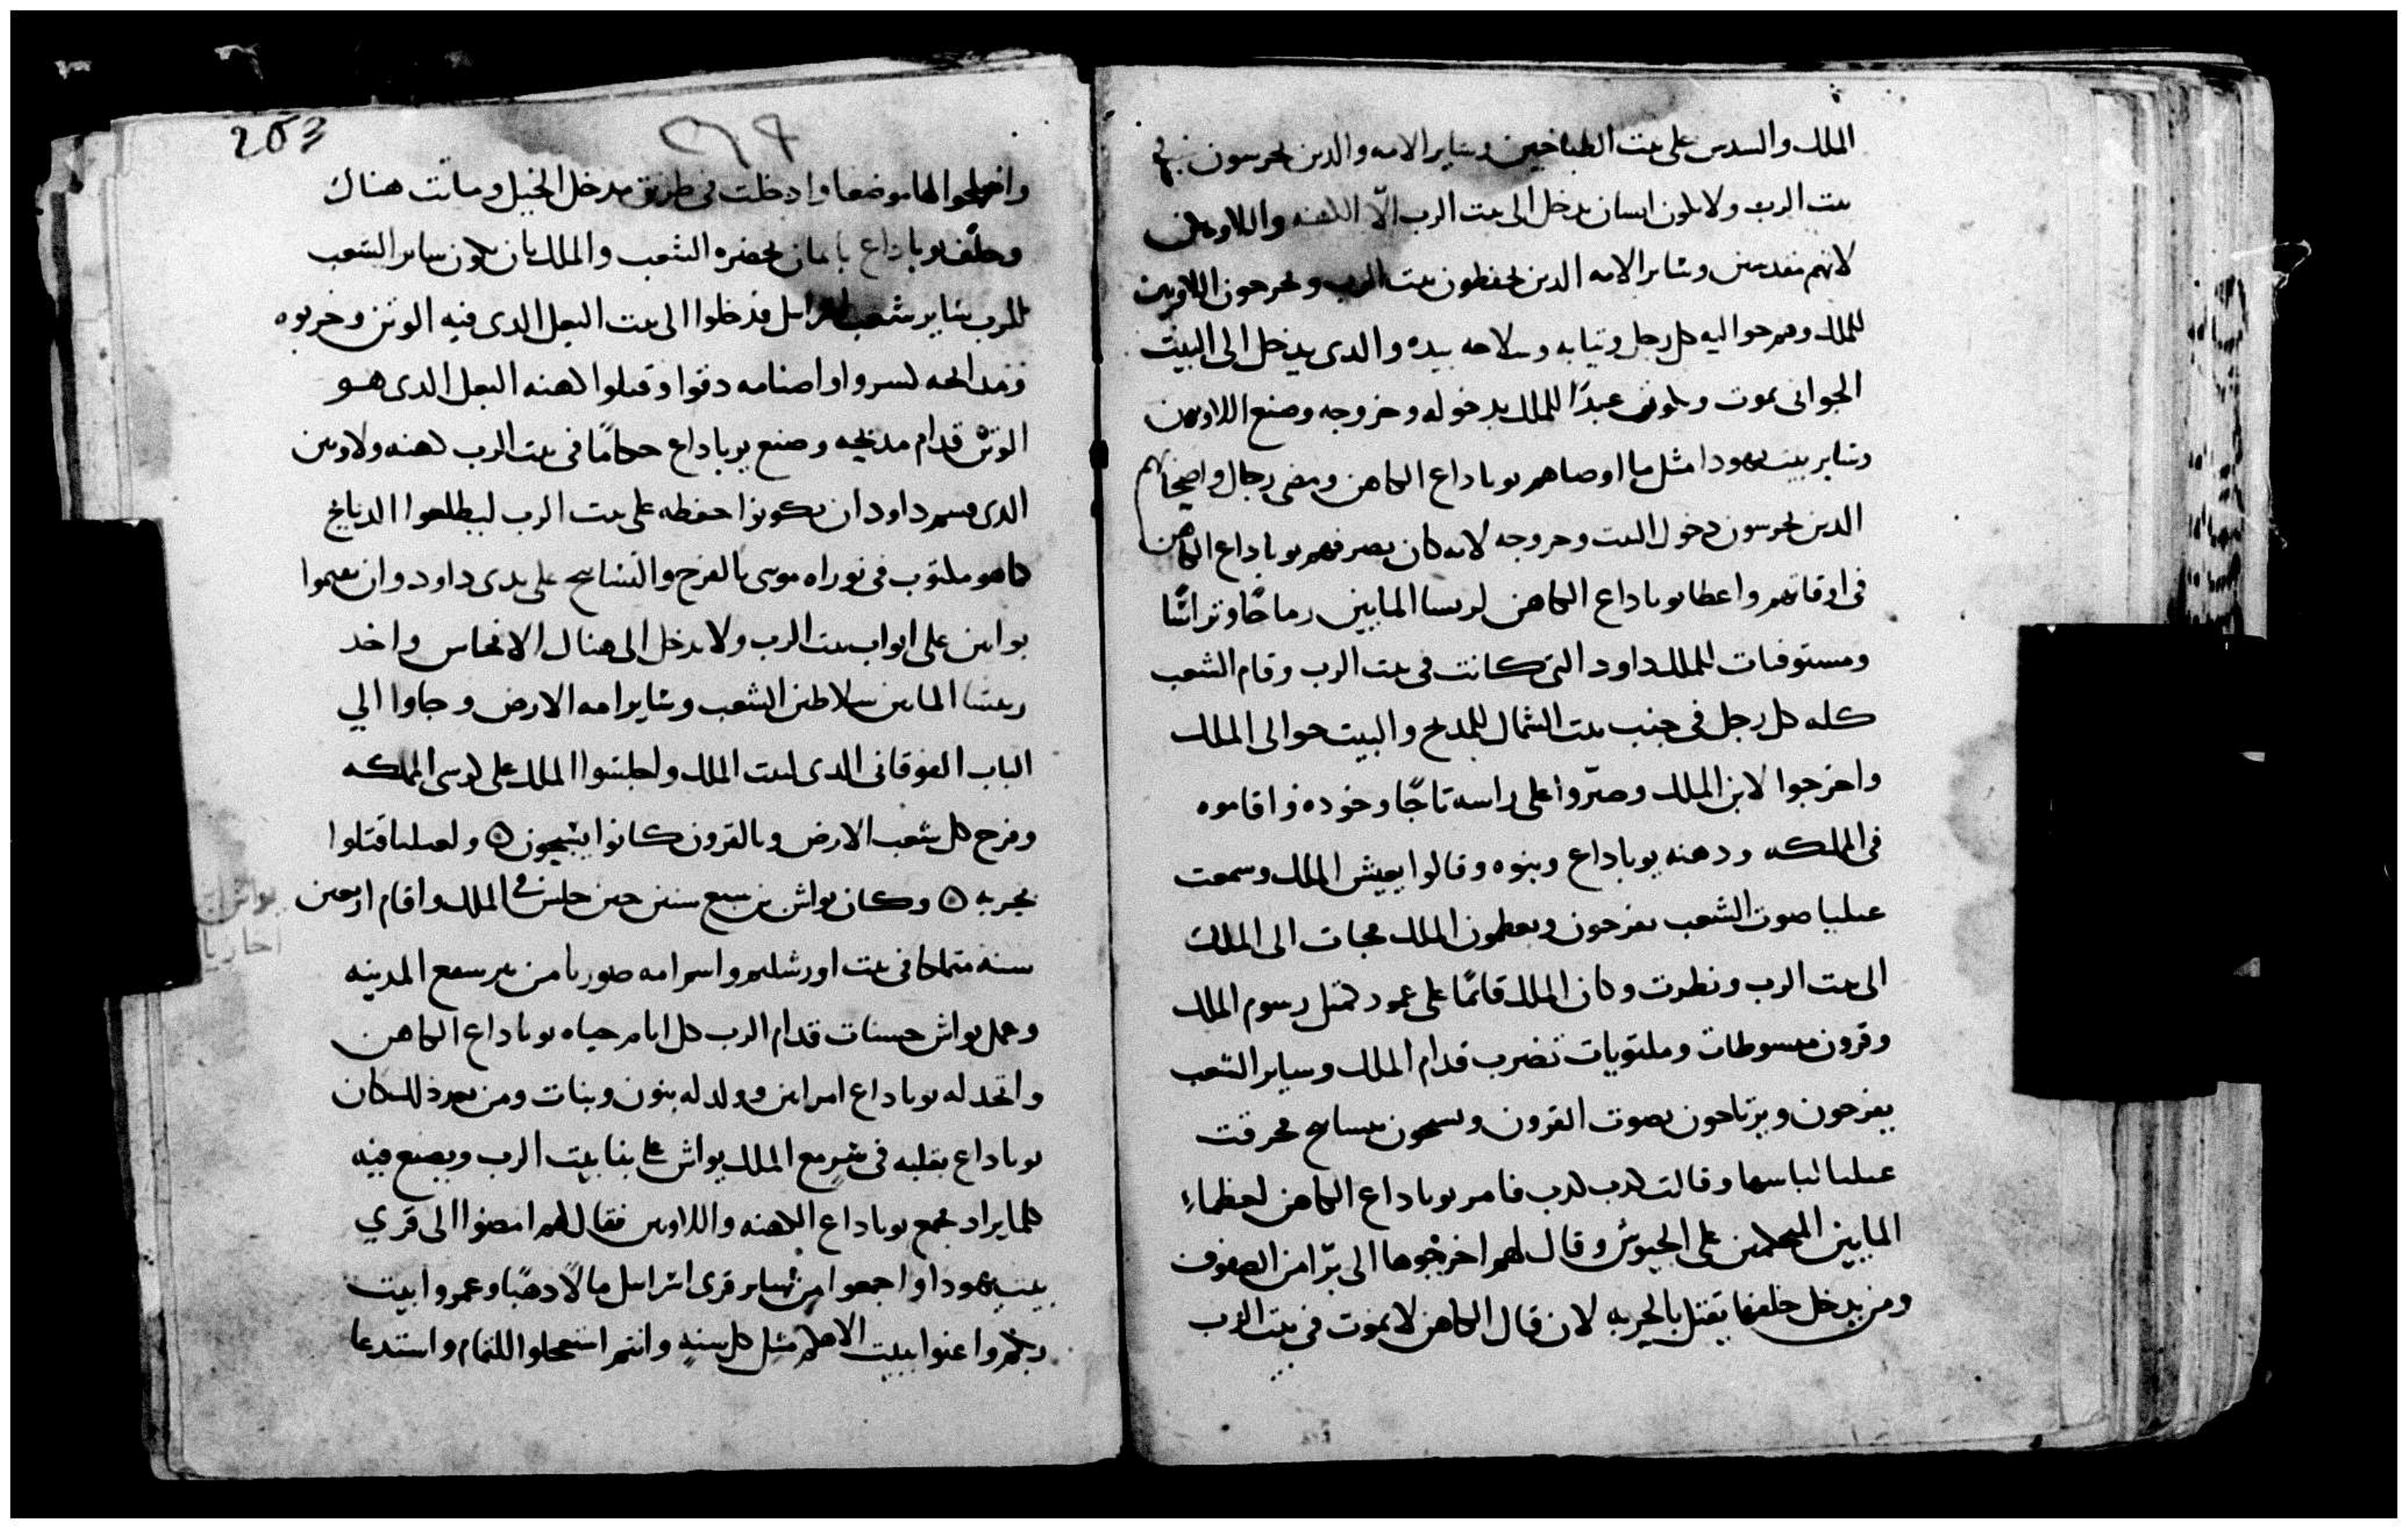 الملك والسدس على بيت الطباخين وساير الامه والدين يحرسون في
بيت الرب ولا يكون انسان يدخل الى بيت الرب الّا الكهنه واللاويين
لانهم مقدسين وساير الامه الدين يحفظون بيت الرب ويحرجون اللاويين
للملك وهم حواليه كل رجل وتيابه وسلاحه بيده والدى يدخل الى البيت
الجوانى يموت ويكونو عبدًا للملك بدخوله وخروجه وصنع اللاويين
وساير بيت يهودا مثل ما اوصاهم يوياداع الكاهن ومضى رجال واصحابهم
الدين يحرسون دخول البيت وخروجه لانه كان يصرفهم يوياداع الكاهن
فى اوقاتهم واعطا يوياداع الكاهن لريسا المايين رماحًا وتراسًا
ومستوفيات للملك داود التى كانت فى بيت الرب وقام الشعب
كله كل رجل فى جنب بيت الشمال للمدبح والبيت حوالى الملك
واخرجوا لابن الملك وصيّروا على راسه تاجًا وخوده واقاموه
فى المملكه ودهنه يوياداع وبنوه وقالوا يعيش الملك وسمعت
عىليا صوت الشعب يفرحون ويعطمون الملك فجات الى الملك
الى بيت الرب ونطرت وكان الملك قايمًا على عمود كمثل رسوم الملك
وقرون مبسوطات وملتويات تضرب قدام الملك وساير الشعب
يفرحون ويرتاحون بصوت القرون ويسبحون تسابيح فحرقت
عىليا لباسها وقالت كدب كدب فامر يوياداع الكاهن لعظماء
المايين المحكمين على الجيوش وقال لهم اخرجوها الى برّا من الصفوف
ومن يدخل خلفها يقتل بالحربه لان قال الكاهن لا يموت فى بيت الرب
203
واصلحوا لها موضعا وادخلت فى طريق مدخل الخيل وماتت هناك
وحلّف يوياداع بايمان بحضره الشعب والملك بان يكون ساير الشعب
للرب ساير شعب اسراييل فدخلوا الى بيت البعل الدى فيه الوتن وخربوه
ومدابحه كسروا واصنامه دقوا وقتلوا كهنه البعل الدى هو
الوتن قدام مدبحه وصنع يوياداع حكامًا فى بيت الرب كهنه ولاويين
الدى قسم داود ان يكونوا حفظه على بيت الرب ليطلعوا الدبايح
كما هو مكتوب فى توراه موسى بالفرح والتسابيح على يدى داود وان يقيموا
بوابين على ابواب بيت الرب ولا يدخل الى هناك الانجاس واخد
ريسا المايين سلاطين الشعب وساير امه الارض وجاوا الي
الباب الفوقانى الدى لبيت الملك واجلسوا الملك على كرسى المملكه
وفرح كل شعب الارض وبالقرون كانوا يسبحون ولعىليا قتلوا
بحربه وكان يواش بن سبع سنين حين جلس فى الملك واقام اربعين
سنه متملكا فى بيت اورشليم واسم امه صوريا من بير سبع المدينه
وعمل يواش حسنات قدام الرب كل ايام حياه يوياداع الكاهن
واتخد له يوياداع امراتين وولد له بنون وبنات ومن بعد دلك كان
يوياداع بقلبه فى شريع الملك يواش على بنا بيت الرب ويصنع فيه
كلما يراد فجمع يوياداع الكهنه واللاويين فقال لهم امضوا الى قري
بيت يهودا واجمعوا من ساير قرى اسراييل مالًا دهبًا وعمروا بيت
ربكم واعنوا ببيت الاهكم مثل كل سنه وانتم استعجلوا اللتمام واستدعا